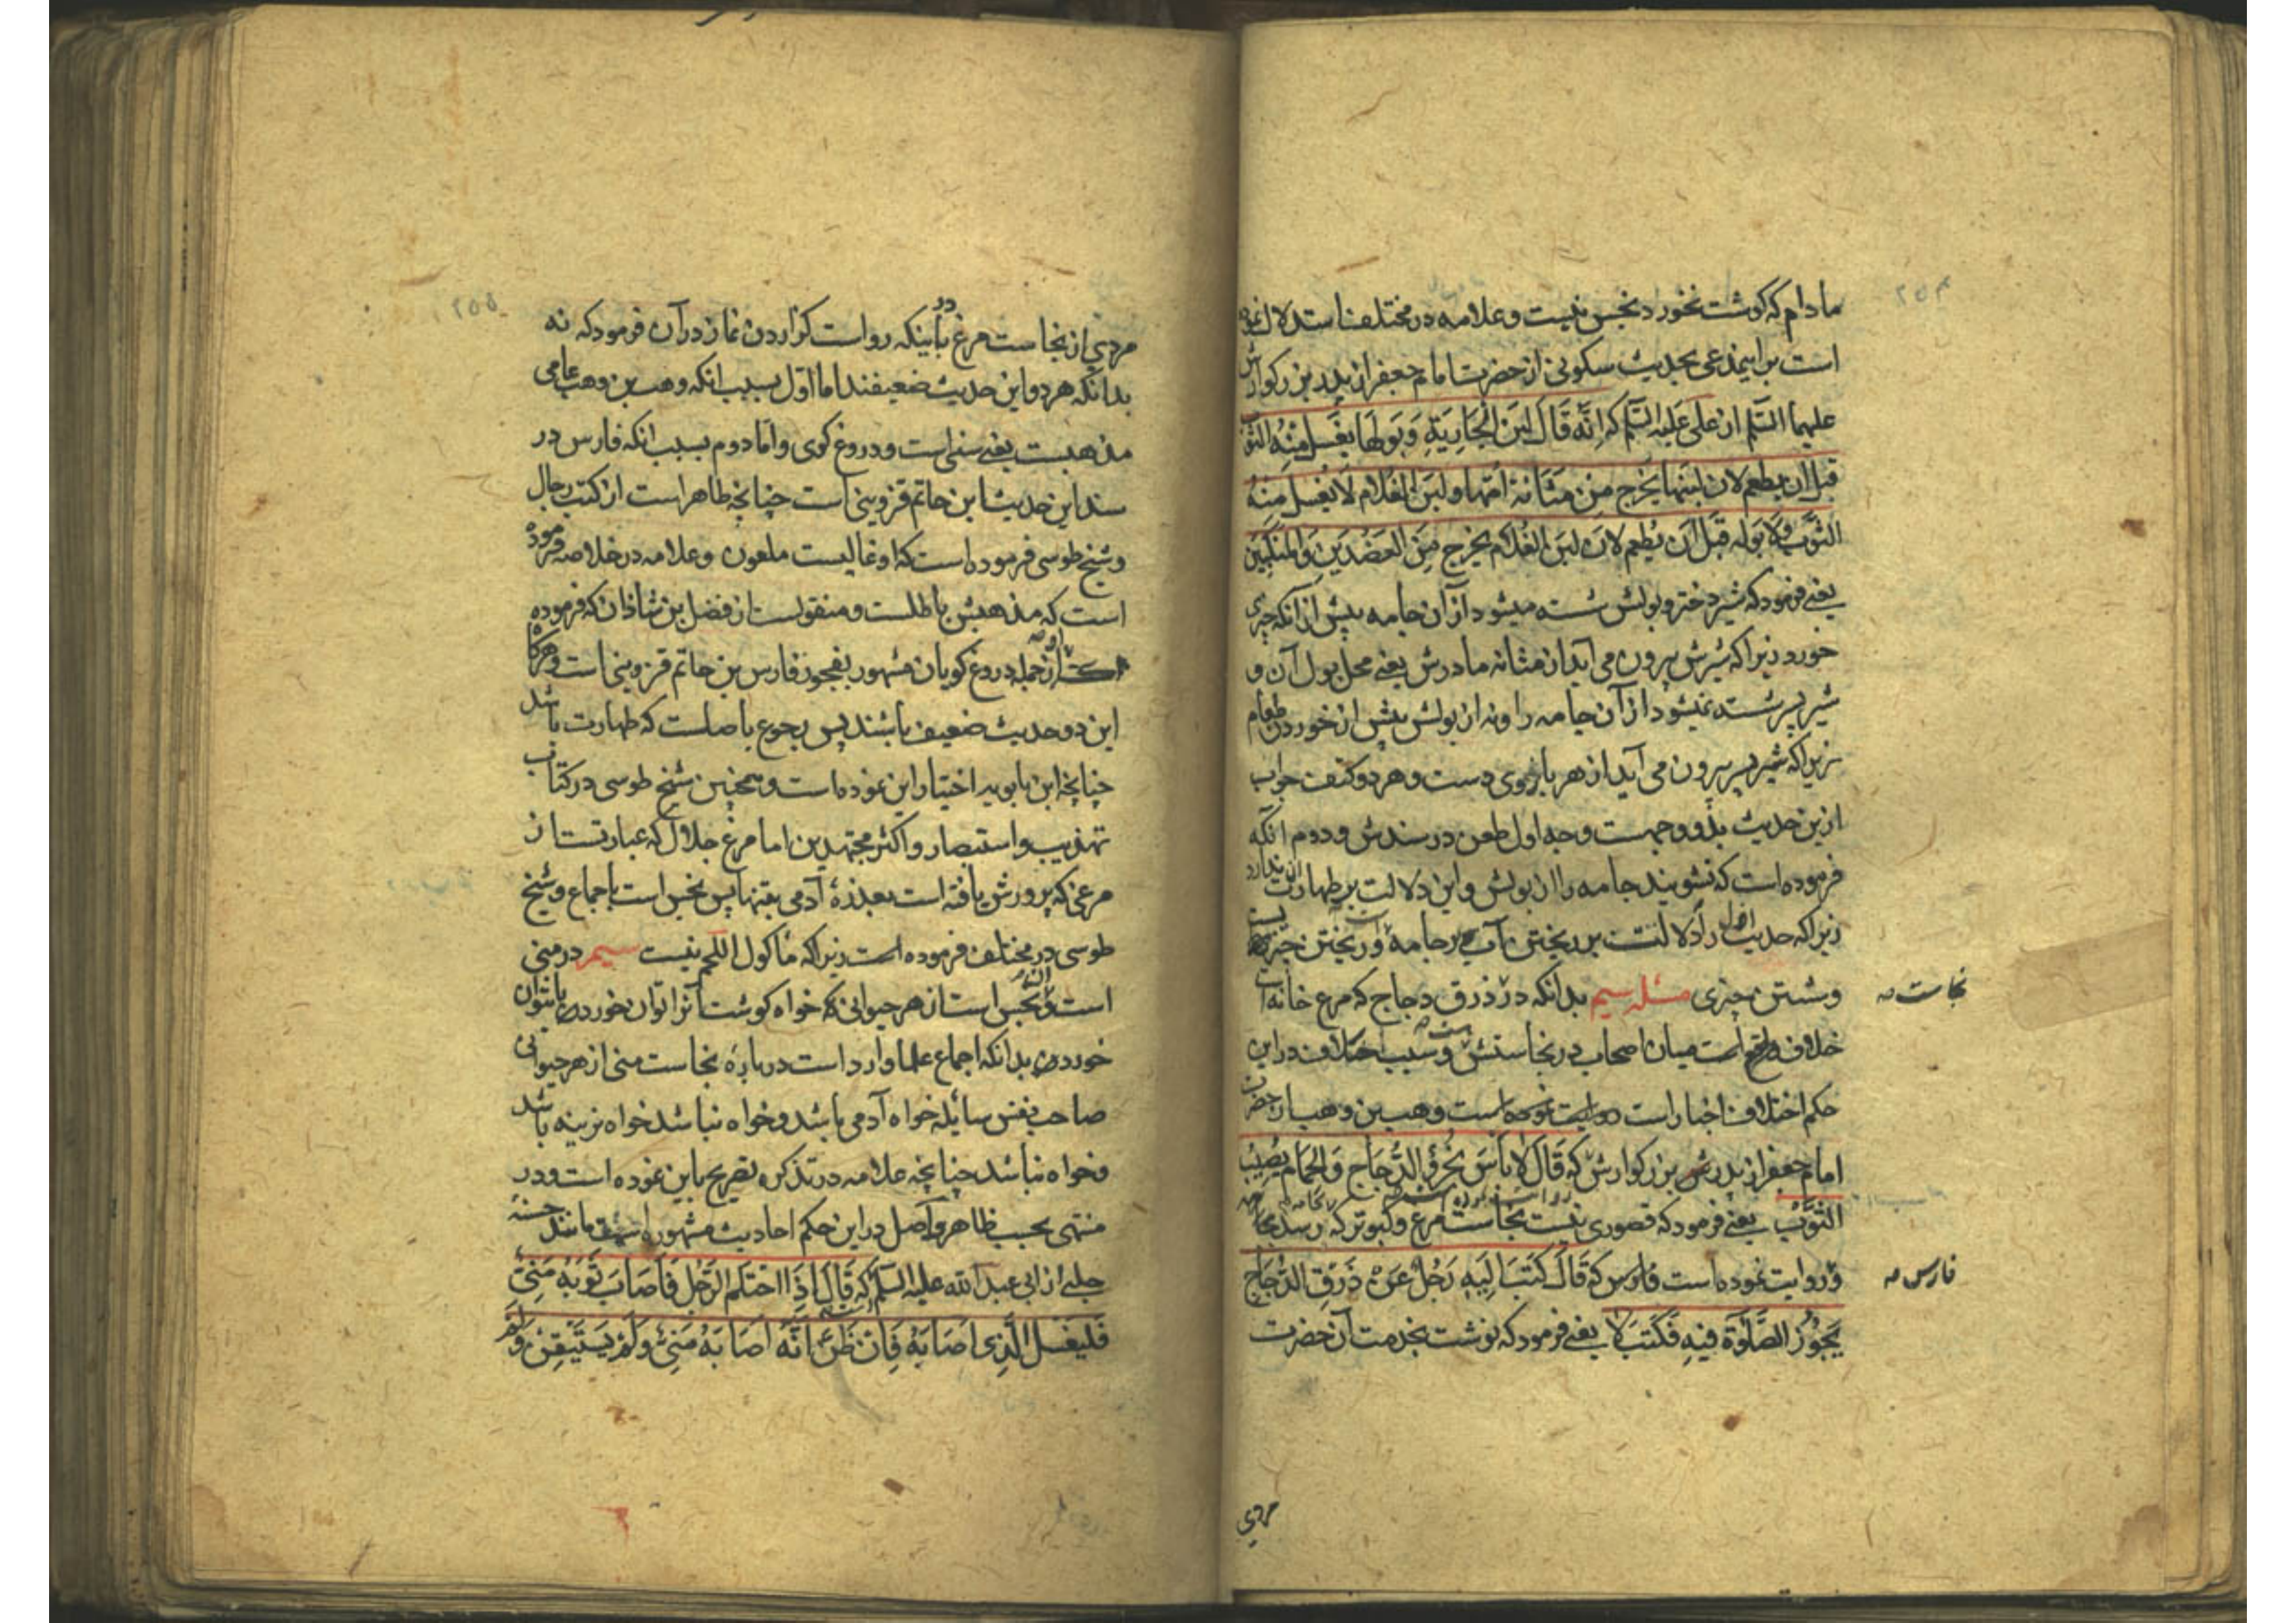 مادام که کوشت نخورد نجس نیست و علامه در مختلف استدلال نموده
است براینمدعی بحدیث سکونی از حضرت امام جعفر از پدر بزرکوارش
علیهما السّلم از علی علیه السّلم که اِنَّه قَالَ لَبَن الْجَارِیَةِ وَبَولهَا یغسَل مِنْهُ الثَّوْب
قبل ان یطعم لان لبنها یخرج مِنْ مَثَانَة اُمّها ولبَن الغلام لَا یُغسل مِنهُ
الثوَّب وَلَا بَوله قَبلَ اَن یطعم لان لبَن الغلام یخرج مِنَ العَضُدَینِ وَالمَنکَبَیْن
یعنے فرمود که شیر دختر و بولش شسته میشود از آن جامه پیش از انکه چیزی
خورد زیرا که شیرش بیرون می آید از مثانه مادرش یعنے محل بول آن و
شیر پسر شسته نمیشود از آن جامه را و نه از بولش پیش از خوردن طعام
زیرا که شیر پسر بیرون می آید از هر بازوی دست و هر دو کتف جواب
ازین حدیث بدو وجهست وجه اول طعن در سندش و دوم انکه
فرموده است که نشویند جامه را از بولش و این دلالت بر طهارت آن ندارد
زیرا که حدیث اول را دلالت بر ریختن آب بر جامه و ریختن چیزیست
و شستن چیزی مسئله سیم بدانکه در ذرق دجاج که مرغ خانه است
نجاست صه
خلاف واقع است میان اصحاب در نجاستش و سبب اختلاف در این
حکم اختلاف اخبار است وهب بن وهب از حضرت
امام جعفر از پدرش بزرکوارش که قَالَ لَا بَاْسَ بخُرؤ الدّجَاجِ وَالحَمَام یُصِیْبُ
الثَّوْب یعنے فرمود که قصوری نیست نجاست مرغ و کبوتر که رسد بجامه
و روایت نموده است فارس که قَالَ کَتَبَ اِلَیهِ رَجُلٌ عَنْ ذَرَقِ الدّجَاجِ
فارس صه
یَجُوْز الصَّلٰوة فیهِ فَکَتَبَ لَا یعنے فرمود که نوشت بخدمت آن حضرت
مردی
٢٥٤
مردی از نجاست مرغ در باینکه رواست کزاردن نماز در آن فرمود که نه
بدانکه هر دو این حدیث ضعیفند اما اول بسبب انکه وهب بن وهب عامی
مذهبست یعنے سنی است و دروغ کوی و اما دوم بسبب انکه فارس در
سند این حدیث ابن حاتم قزوینی است چنانچه ظاهر است از کتب رجال
و شیخ طوسی فرموده است که او غالیست ملعون و علامه در خلاصه فرموده
است که مذهبش باطلست و منقولست از فضل بن شاذان که فرموده
از جمله دروغ کویان مشهور بفجور فارس بن حاتم قزوینی است و هرکاه
این دو حدیث ضعیف باشند پس رجوع باصلست که طهارت باشد
چنانچه ابن بابویه اختیار این نموده است و همچنین شیخ طوسی در کتاب
تهذیب و استبصار و اکثر مجتهدین اما مرغ جلال که عبارتست از
مرغی که پرورش یافته است بعذرهٔ آدمی بتنها پس نجس است باجماع و شیخ
طوسی در مختلف فرموده است زیرا که ماکول اللحم نیست سیم در منی
است و آن نجس است از هر حیوانی که خواه کوشت آنرا توان خورد یا نتوان
خورد بدانکه اجماع علما وارد است دربارهٔ نجاست منی از هر حیوانی
صاحب نفس سایله خواه آدمی باشد و خواه نباشد خواه نرینه باشد
و خواه نباشد چنانچه علامه در تذکره تصریح باین نموده است و در
منتهی بحسب ظاهر و اصل در این حکم احادیث مشهوره است مانند حسنهٔ
حلبے از ابی عبد الله علیه السّلم که قَالَ اِذَا احْتَلم الرّجُل فَاَصَابَ ثَوبَهُ مَنِیٌّ
فَلیغسل الَّذِی اَصَابَهُ فَاِنْ ظَنَّ اَنَّه اَصَابَهُ مَنِیٌّ وَلَمْ یَستَیْقِنْ وَلَمْ
٢٥٥